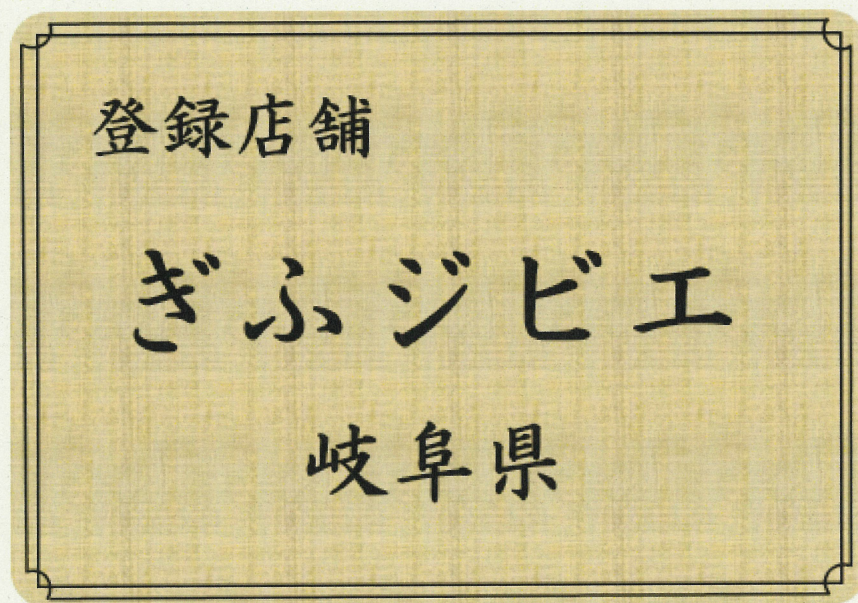 登録店舗
ぎふジビエ
岐阜県